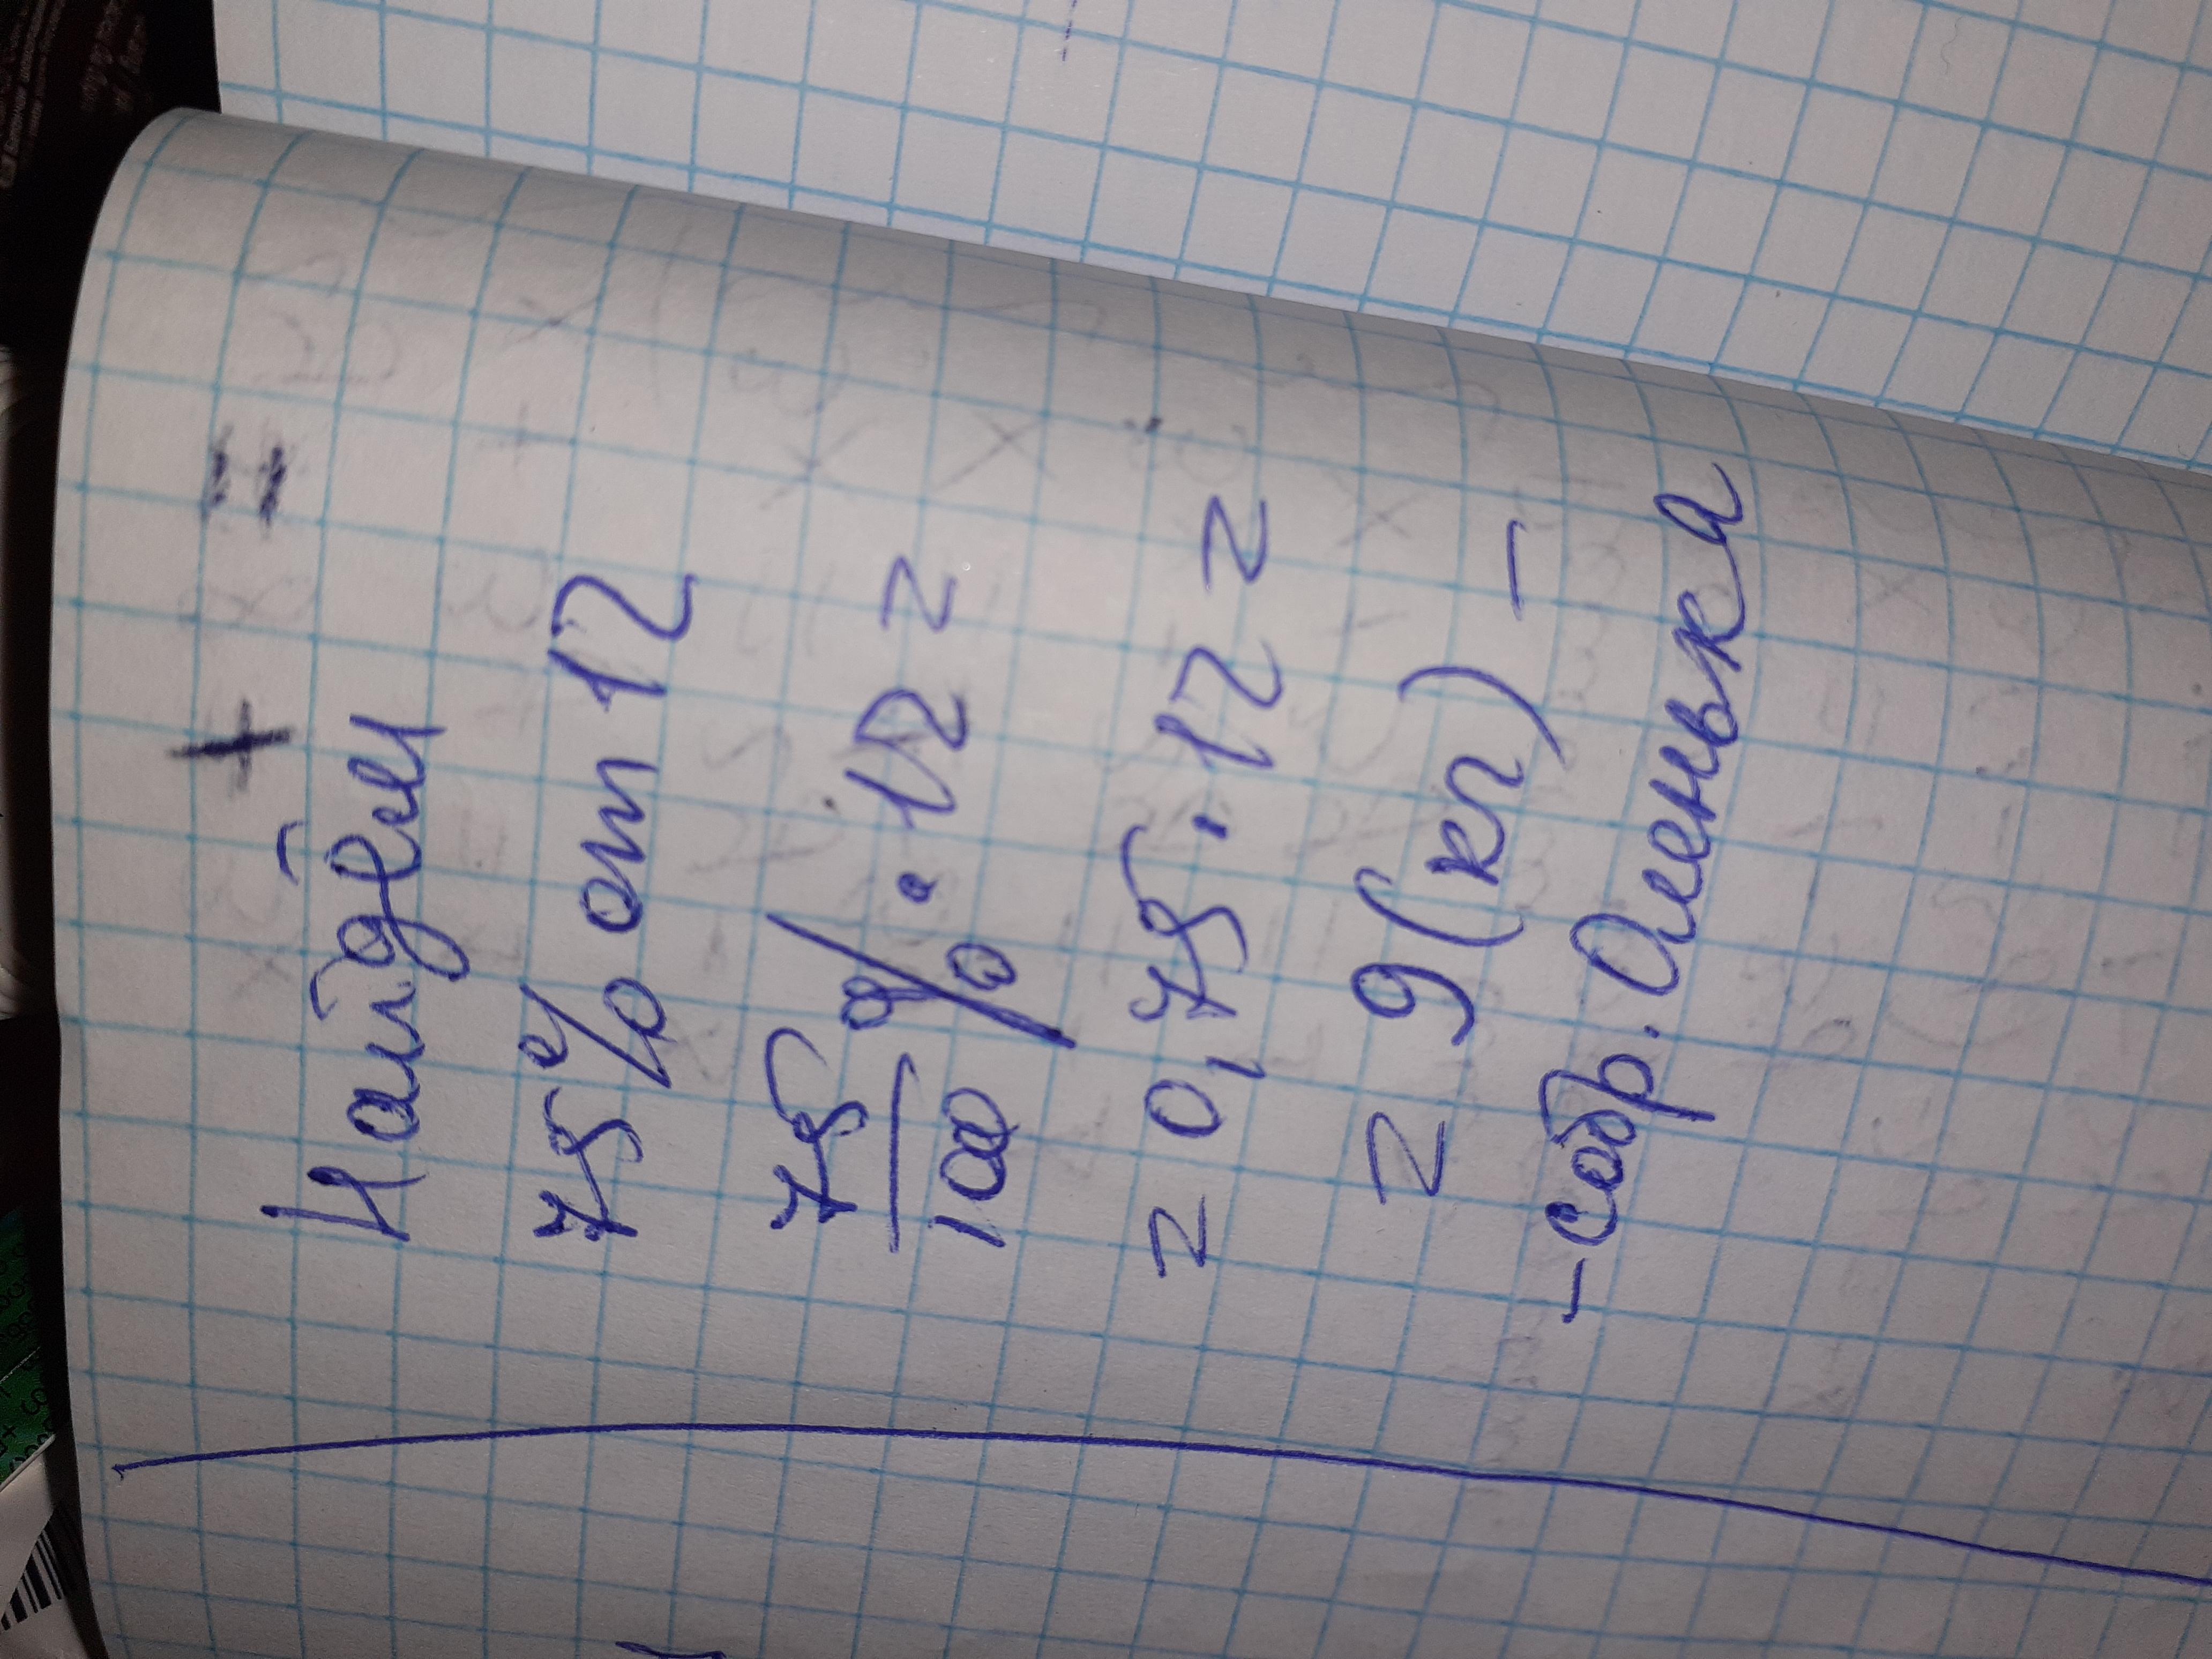 + =
Найдем
75% от 12
75%/100% · 12 =
= 0,75 · 12 =
= 9 (кг) —
- собр. Оленька